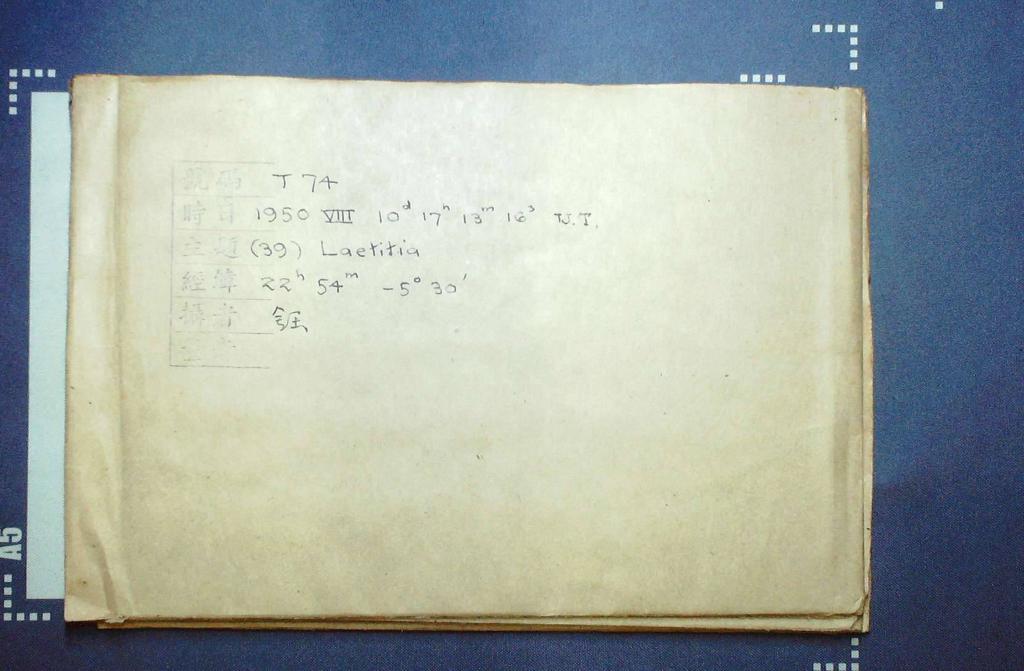 號碼 T 74
時日 1950 VIII 10ᵈ 17ʰ 13ᵐ 16ˢ U.T.
主題 (39) Laetitia
經緯 22ʰ 54ᵐ -5° 30′
攝者
A5